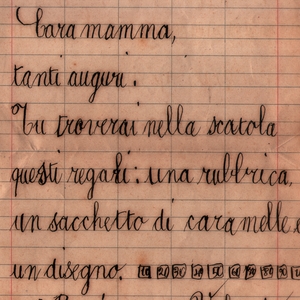 Cara mamma,
tanti auguri.
Tu troverai nella scatola
questi regali: una rubbrica,
un sacchetto di caramelle e
un disegno.